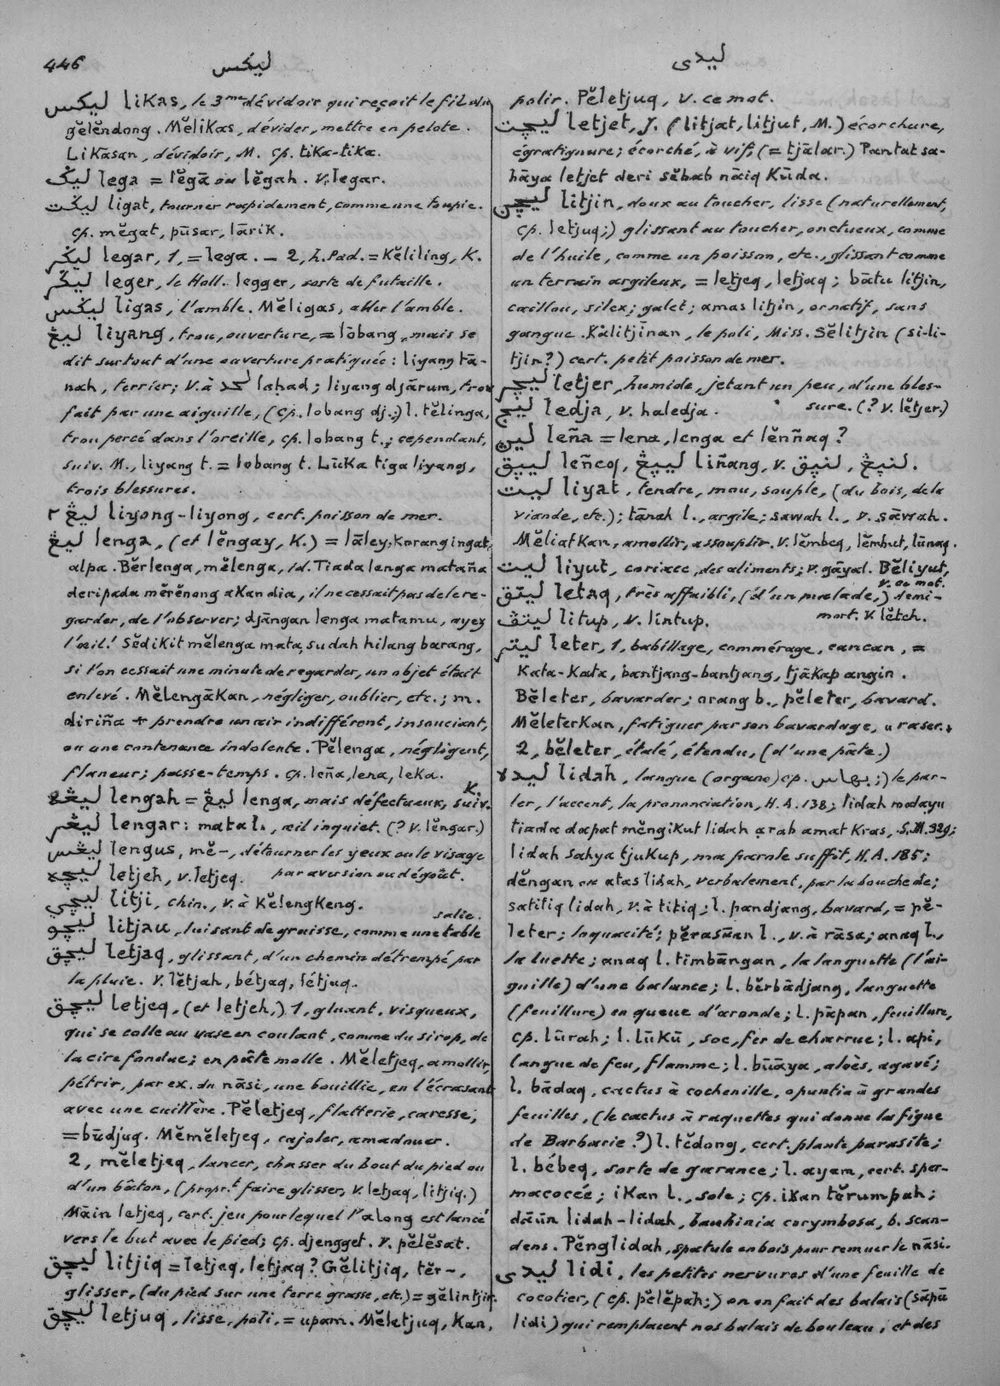 446
ليكس
ليدى
ليكس likas, le 3me dévidoir qui reçoit le fil du
gĕlĕndong. Mĕlikas, dévider, mettre en pelote.
Likasan, dévidoir, M. cp. tika-tika.
ليݢ lega = lĕgā ou lĕgah. v. legar.
ليݢت ligat, tourner rapidement, comme une toupie.
cp. mĕgat, pūsar, lārik.
ليݢر legar, 1, = lega. — 2, h. Pad. = Kĕliling, K.
ليݢر leger, le Holl. legger, sorte de futaille.
ليݢس ligas, l'amble. Mĕligas, aller l'amble.
ليڠ liyang, trou, ouverture, = lōbang, mais se
dit surtout d'une ouverture pratiquée: liyang tā-
nah, terrier; v. à لحد laḥad; liyang djārum, trou
fait par une aiguille, (cp. lobang dj.;) l. tĕlinga,
trou percé dans l'oreille, cp. lobang t.; cependant,
suiv. M., liyang t. = lobang t. Lūka tiga liyang,
trois blessures.
ليڠ ٢ liyong-liyong, cert. poisson de mer.
ليڠ lenga, (et lĕngay, K.) = lāley; korang ingat,
alpa. Bĕrlenga, mĕlenga, id. Tiada lenga matañа
deripada mĕrĕnong akan dia, il ne cessait pas de le re-
garder, de l'observer; djāngan lenga matamu, ayez
l'œil! Sĕdikit mĕlenga mata, sudah hilang barang,
si l'on cessait une minute de regarder, un objet était
enlevé. Mĕlengākan, négliger, oublier, etc.; m.
diriña + prendre un air indifférent, insouciant,
ou une contenance indolente. Pĕlenga, négligent,
flaneur; passe-temps. cp. leña, lena, leka.
ليڠه lengah = ليڠ lenga, mais défectueux, suiv. K.
ليڠر lengar: mata l., œil inquiet. (? v. lĕngar.)
ليڠس lengus, mĕ-, détourner les yeux ou le visage
par aversion ou dégoût.
ليچه letjeh, v. letjeq.
ليچي litji, chin., v. à Kĕlengkeng.
ليچو litjau, luisant de graisse, comme une table salie.
ليچق letjaq, glissant, d'un chemin détrempé par
la pluie. v. lĕtjah, bétjaq, létjuq.
ليچق letjeq, (et letjeh,) 1, gluant, visqueux,
qui se colle au vase en coulant, comme du sirop, de
la cire fondue; en pâte molle. Mĕletjeq, amollir,
pétrir, par ex. du nāsi, une bouillie, en l'écrasant
avec une cuillère. Pĕletjeq, flatterie, caresse,
= būdjuq. Mĕmĕletjeq, cajoler, amadouer.
2, mĕletjeq, lancer, chasser du bout du pied ou
d'un bâton, (propr.t faire glisser, v. letjaq, litjiq.)
Māin letjeq, cert. jeu pour lequel l'along est lancé
vers le but avec le pied; cp. djengget. v. pĕlĕsat.
ليچق litjiq = letjeq, letjaq? Gĕlitjiq, tĕr-,
glisser, (du pied sur une terre grasse, etc.) = gĕlintjir.
ليچق letjuq, lisse, poli, = upam. Mĕletjuq, Kan,
polir. Pĕletjuq, v. ce mot.
ليچت letjet, J. (litjat, litjut, M.) écorchure,
égratignure; écorché, à vif; (= tjālar.) Pantat sa-
hāya letjet deri sĕbab nāiq Kūda.
ليچن litjin, doux au toucher, lisse (naturellement,
cp. letjuq;) glissant au toucher, onctueux, comme
de l'huile, comme un poisson, etc., glissant comme
un terrain argileux, = letjeq, letjaq; bātu litjin,
caillou, silex; galet; amas litjin, or natif, sans
gangue. Kālitjinan, le poli, Miss. Sĕlitjin (si-li-
tjin?) cert. petit poisson de mer.
ليچر letjer, humide, jetant un peu, d'une bles-
sure. (? v. lĕtjer.)
ليج ledja, v. haledja.
ليڽ leña = lena, lenga et lĕnñaq?
ليڽق leñeq, ليڽڠ liñang, v. لنيڠ, لنيق.
ليت liyat, tendre, mou, souple, (du bois, de la
viande, etc.); tānah l., argile; sawah l., v. sāwah.
Mĕliatkan, amollir, assouplir. v. lĕmbeq, lĕmbut, lūnaq.
ليت liyut, coriace, des aliments; v. gāyal. Bĕliyut, v. ce mot.
ليتق letaq, très affaibli, (d'un malade,) demi-
mort. v. lĕtch.
ليتڤ litup, v. lintup.
ليتر leter, 1, babillage, commérage, cancan, =
Kata-Kata, bantjang-bantjang, tjākap angin.
Bĕleter, bavarder; orang b., pĕleter, bavard.
Mĕleterkan, fatiguer par son bavardage, « raser. »
2, bĕleter, étalé, étendu, (d'une pâte.)
ليده lidah, langue (organe) cp. بهاس;) le par-
ler, l'accent, la prononciation, H. A. 138; lidah madayu
tiada dapat mĕngikut lidah arab amat kras, S. M. 329;
lidah sahya tjukup, ma parole suffit, H. A. 185;
dĕngan atas lidah, verbalement, par la bouche de;
satitiq lidah, v. à titiq; l. pandjang, bavard, = pĕ-
leter; loquacité; pĕrasāan l., v. à rāsa; anaq l.,
la luette; anaq l. timbāngan, la languette (l'ai-
guille) d'une balance; l. bĕrbādjang, languette
(feuillure) en queue d'aronde; l. pāpan, feuillure,
cp. lūrah; l. lūkū, soc, fer de charrue; l. api,
langue de feu, flamme; l. būāya, aloès, agavé;
l. bādaq, cactus à cochenille, opuntia à grandes
feuilles, (le cactus à raquettes qui donne la figue
de Barbarie?) l. tĕdong, cert. plante parasite;
l. bébeq, sorte de garance; l. ayam, cert. sper-
macocée; ikan l., sole; cp. ikan tĕrumpah;
dāün lidah-lidah, bauhinia corymbosa, b. scan-
dens. Pĕnglidah, spatule en bois pour remuer le nāsi.
ليدى lidi, les petites nervures d'une feuille de
cocotier, (cp. pĕlĕpah;) on en fait des balais (sāpū
lidi) qui remplacent nos balais de bouleau, et des